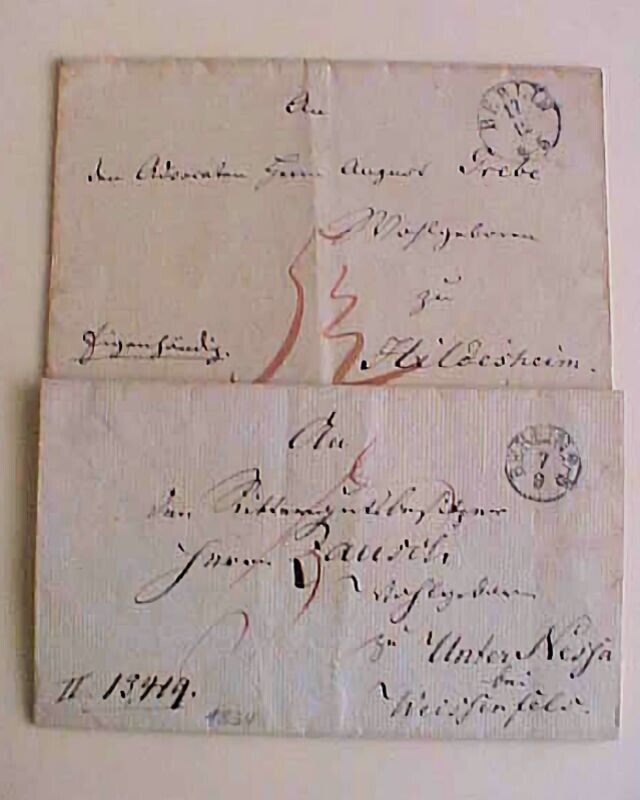 An
BERLIN
17
12
den Advocaten Herrn August Grebe
Wohlgeboren
zu
Eigenhändig.
Hildesheim.
An
BERLIN
7
9
den Rittergutsbesitzer
Herrn Bausch,
Wohlgeboren
zu Unter Nessa
bei
II. 13419.
Weissenfels.
1834